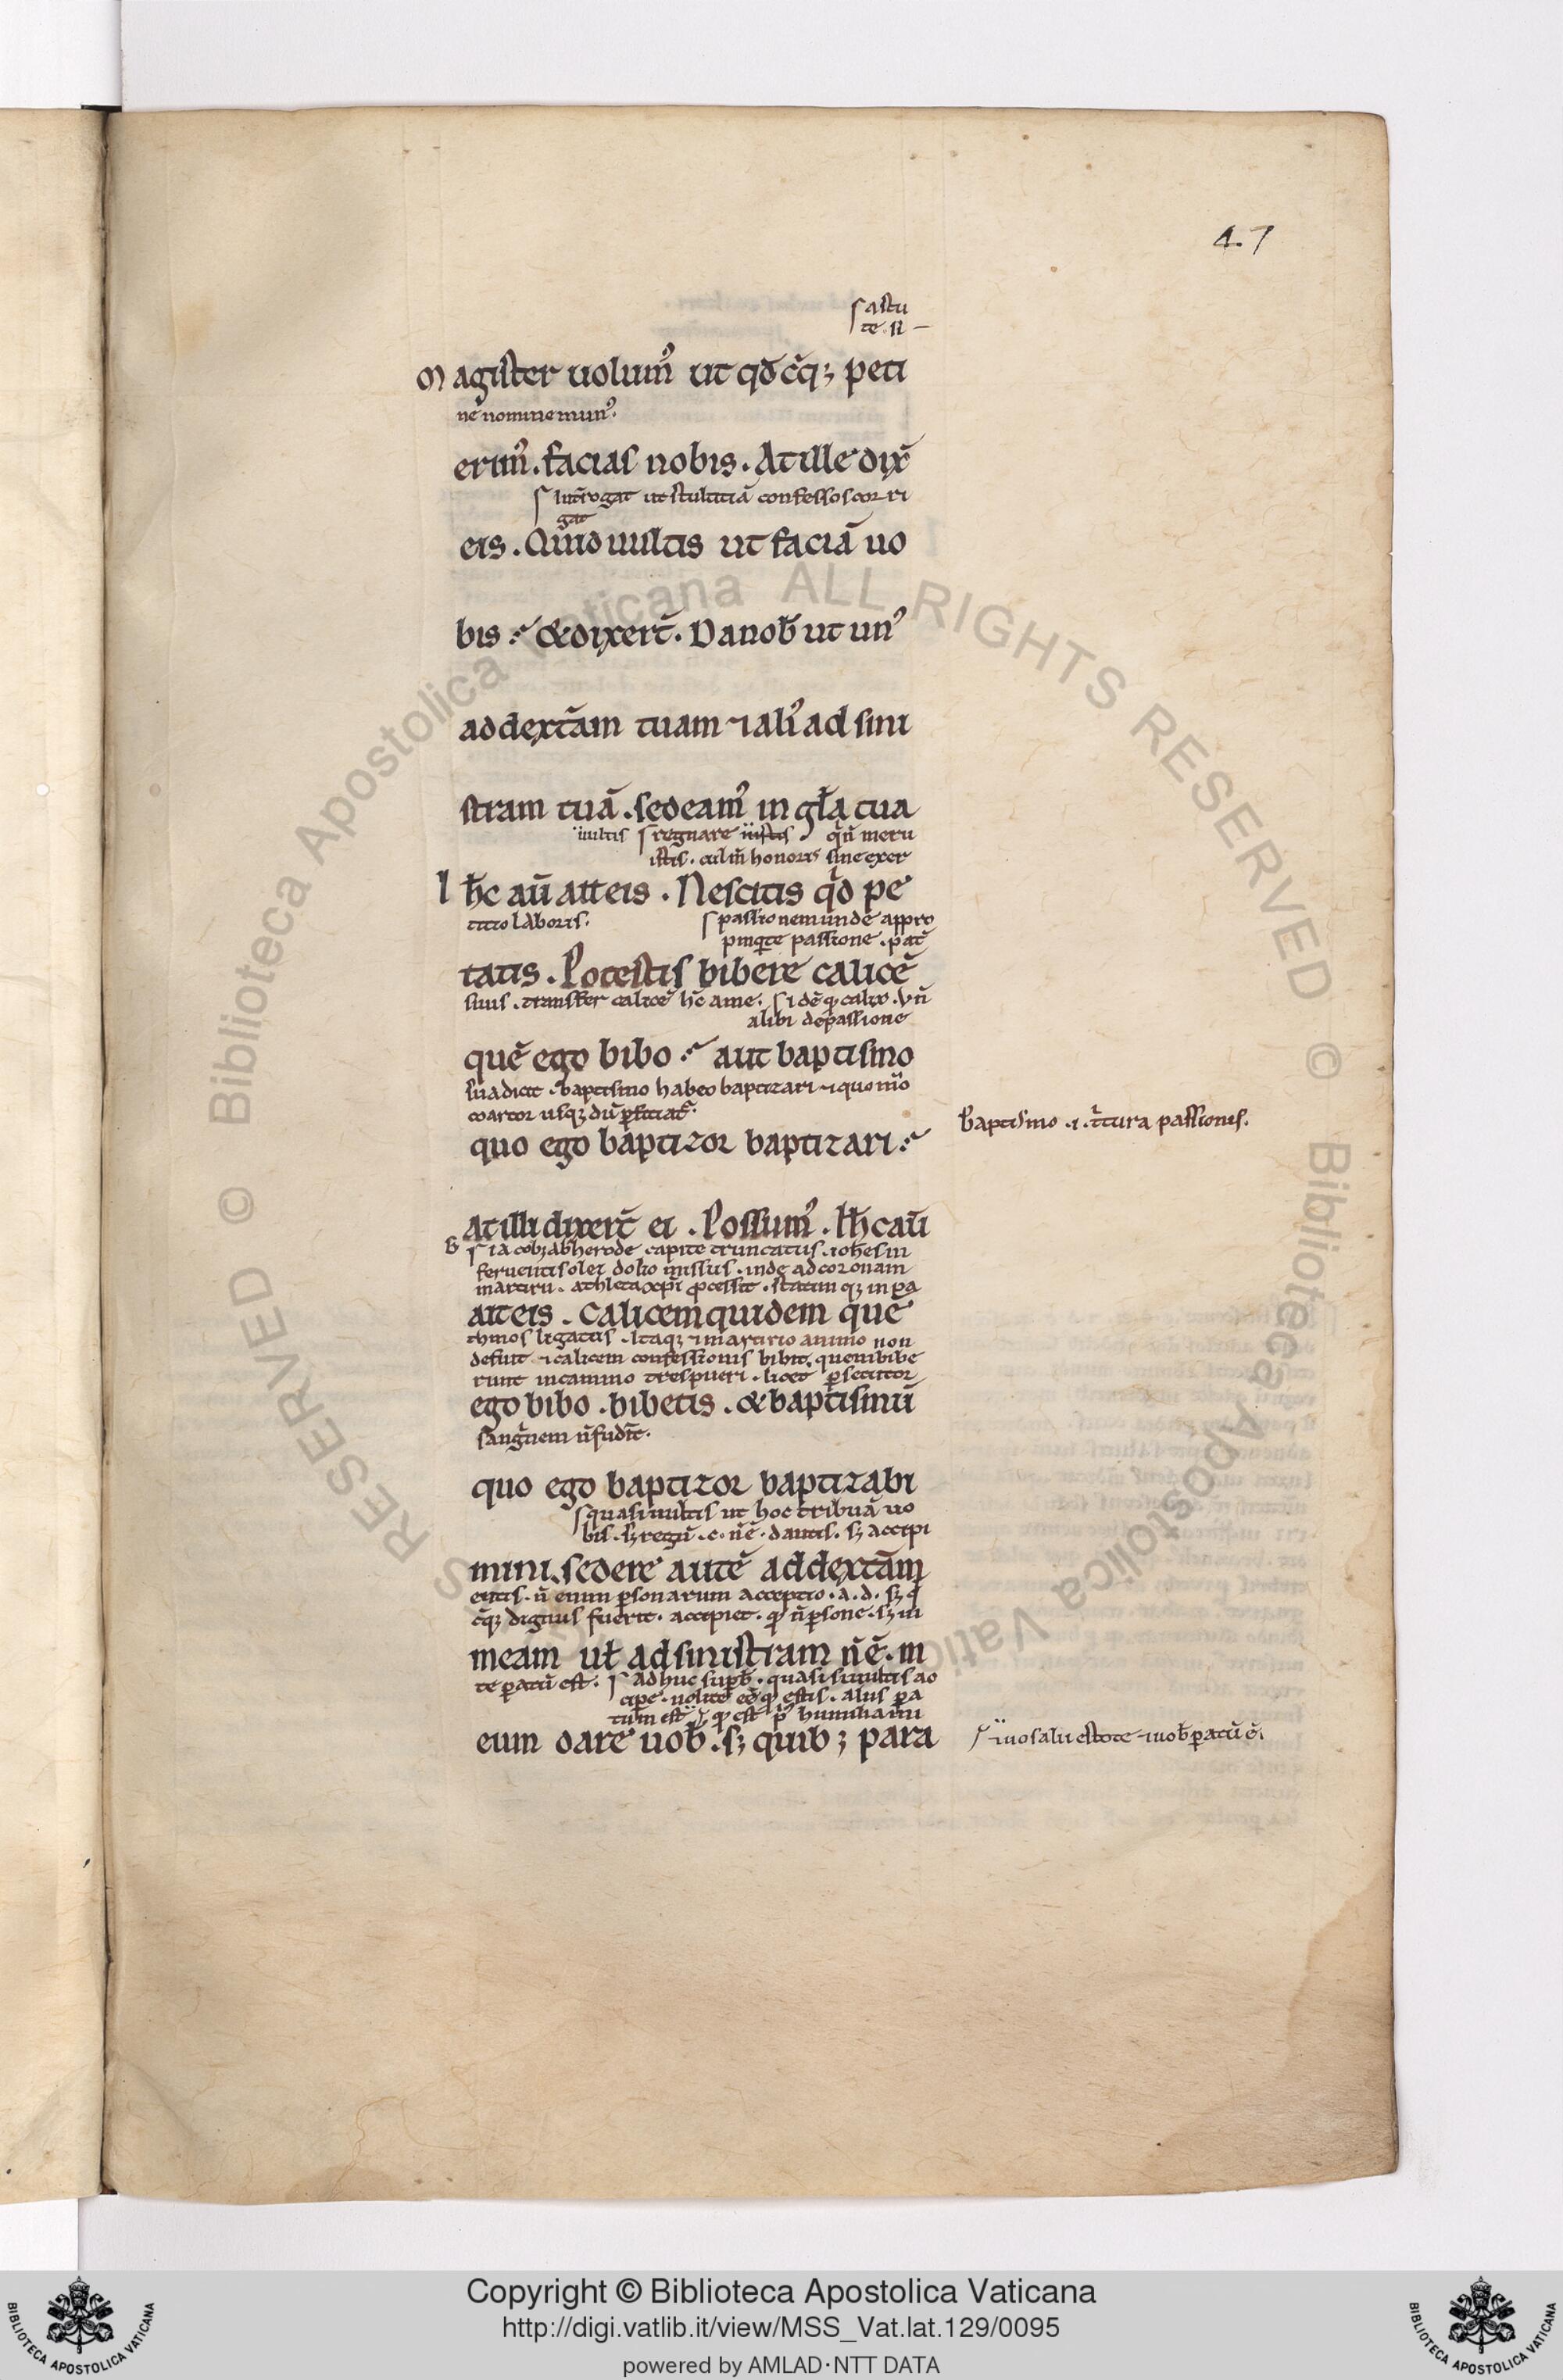 47
ſ aſtu
te. ñ –
Magiſter uolumꝰ ut qdcq; peti
ne nomine munꝰ.
erimꝰ. facias nobis. At ille dix̄
ſ int̄rogat ut ſtultitiā confeſſos corri
gat
eis. Quid uultis ut faciā uo
bis : & dixer̄t. Da nob̄ ut unꝰ
ad dext̄am tuam ⁊ aliꝰ ad ſini
ſtram tuā. ſedeamꝰ in gl̄a tua
uultis ſ regnare iuſtis qn̄ meru
iſtis. culm̄ honoris ſine exer
Ih̄c aū ait eis. Neſcitis qd pe
titio laboris. ſ paſſionem unde appro
pinq̄te paſſione. pat̄
tatis. Poteſtis bibere calicē
ſuus. transfer calicē hc̄ a me. ſ idē q calix. vn̄
alibi de paſſione
quē ego bibo : aut baptiſmo
ſua dicit. baptiſmo habeo baptizari ⁊ quo m̊o
coartor uſq; dū ꝑficiat᷑.
baptiſmo .i. t̄tura paſſionis.
quo ego baptizor baptizari :
At illi dixer̄t ei. Poſſumꝰ. Ih̄c aū
B ſ iacob; ab herode capite truncatus. ioh̄es in
feruentis olei dolio miſſus. inde ad coronam
martirii. athleta xp̄i proceſſit. ſtatimq; in pa
ait eis. Calicem quidem quē
thmos legatus. Itaq; ⁊ martirio animo non
defuit ⁊ calicem confeſſionis bibit, quem bibe
runt in camino tres pueri. licet ꝑſecutor
ego bibo. bibetis. & baptiſmū
ſanguinem n̄ fud̄it.
quo ego baptizor baptizabi
ſ quaſi uultis ut hoc tribuā uo
bis. ſ; regnū. c. n̄ ē. dantis. ſ; accipi
mini. ſedere autē ad dext̄am
entis. n̄ enim ꝑſonarum acceptio. a. d. ſ; q
cq; dignus fuerit. accipiet. q n̄ ꝑſone. ſ; ui
meam ul̄ ad siniſtram n̄ ē. m
te ꝑatū eſt. ſ ad huc ſuꝑb̄. quaſi ſi uultis ac
cipe. nolite eē q eſtis. aliis ꝑa
tum eſt ⁊ q eſt p̄ humiliami
eum dare uob̄. ſ; quib; para
ſ ⁊ uos alii eſtote ⁊ uob̄ ꝑatū ē.
Copyright © Biblioteca Apostolica Vaticana
http://digi.vatlib.it/view/MSS_Vat.lat.129/0095
powered by AMLAD·NTT DATA